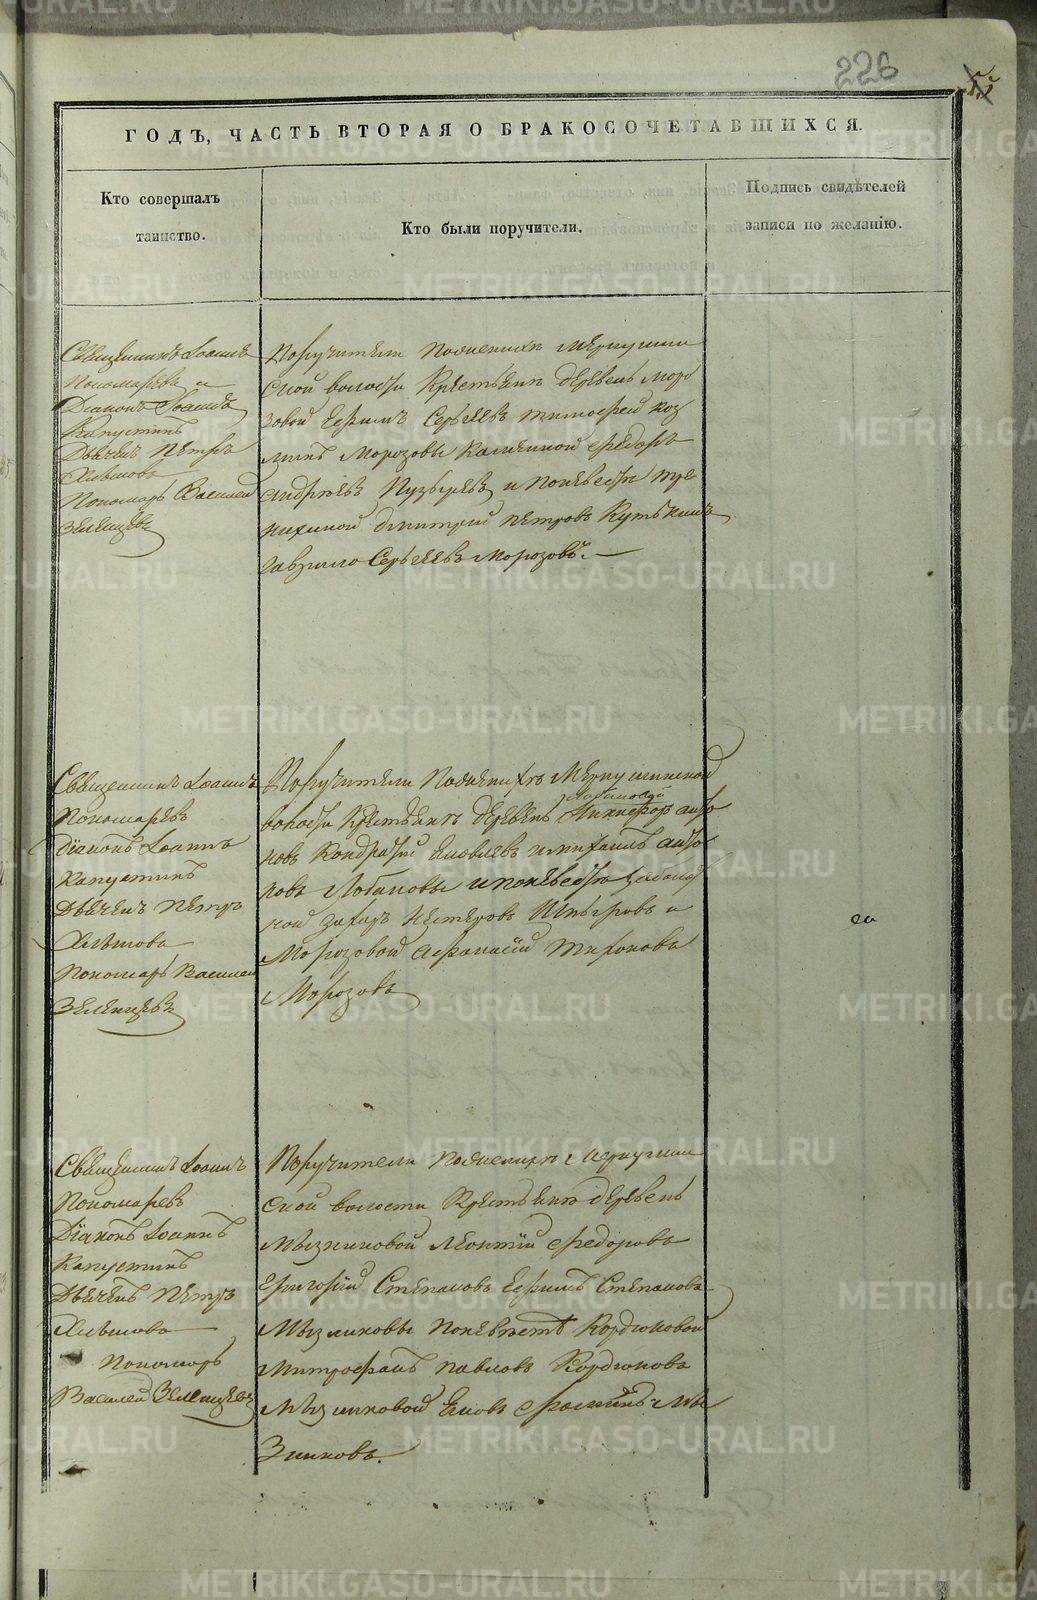 226
ГОДЪ, ЧАСТЬ ВТОРАЯ О БРАКОСОЧЕТАВШИХСЯ.
Кто совершалъ
таинство.
Кто были поручители.
Подпись свидѣтелей
записи по желанію.
Священникъ Іоаннъ
Пономаревъ и
Діаконъ Іоаннъ
Капустинъ
Дьячекъ Петръ
Пономарь Василей
Зеленцевъ
Поручители по женихѣ Меркушин
ской волости Крестьяне деревень Моро
зовой Ефимъ Сергѣевъ Тимофей Коз
минъ Морозовы Калининой Федоръ
Андреевъ Пузыревъ и по невестѣ
Дмитрий Петровъ Кутькинъ
Гаврило Сергѣевъ Морозовъ.
Священникъ Іоаннъ
Пономаревъ
Діаконъ Іоаннъ
Капустинъ
Дьячекъ Петръ
Пономарь Василей
Зеленцевъ
Поручители по женихѣ Меркушинской
Лобановой
волости Крестьяне деревень Никифоръ Анто
новъ Кондратій Яковлевъ и Михаилъ Анто
новъ Лобановы и по невестѣ
ной Захаръ Нестеровъ и
Морозовой Афанасій Тихоновъ
Морозовъ
Священникъ Іоаннъ
Пономаревъ
Діаконъ Іоаннъ
Капустинъ
Дьячекъ Петръ
Пономарь
Василей Зеленцевъ
Поручители по женихѣ Меркушин
ской волости Крестьяне деревень
Мызниковой Леонтій Федоровъ
Григорій Степановъ Ефимъ Степановъ
Мызниковы по невѣстѣ Кордюковой
Митрофанъ Павловъ Кордюковъ
Мызниковой Яковъ Мы
зниковъ.
METRIKI.GASO-URAL.RU